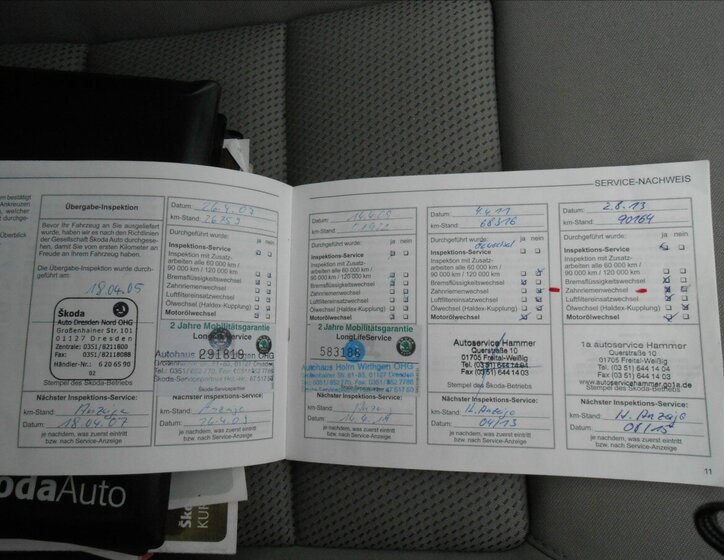 SERVICE-NACHWEIS
Übergabe-Inspektion
Bevor Ihr Fahrzeug an Sie ausgeliefert
wurde, haben wir es nach den Richtlinien
der Gesellschaft Škoda Auto durchgese-
hen, damit Sie vom ersten Kilometer an
Freude an Ihrem Fahrzeug haben.
Die Übergabe-Inspektion wurde durch-
geführt am:
18.04.05
Škoda
Auto Dresden Nord OHG
Großenhainer Str.101
01127 Dresden
Zentrale: 0351/8211800
Fax: 0351/82118088
Händler-Nr.: 620 65 90
02
Stempel des Škoda-Betriebs
Nächster Inspektions-Service:
km-Stand: Anzeige
Datum: 18.04.07
je nachdem, was zuerst eintritt
bzw. nach Service-Anzeige
Datum: 26.4.07
km-Stand:
Durchgeführt wurde:
ja nein
Inspektions-Service
Inspektion mit Zusatz-
arbeiten alle 60 000 km /
90 000 km / 120 000 km
Bremsflüssigkeitswechsel
Zahnriemenwechsel
Luftfiltereinsatzwechsel
Ölwechsel (Haldex-Kupplung)
Motorölwechsel
2 Jahre Mobilitätsgarantie
LongLifeService
291819
Nächster Inspektions-Service:
km-Stand: Anzeige
Datum: 26.4.09
je nachdem, was zuerst eintritt
bzw. nach Service-Anzeige
Datum:
km-Stand:
Durchgeführt wurde:
ja nein
Inspektions-Service
Inspektion mit Zusatz-
arbeiten alle 60 000 km /
90 000 km / 120 000 km
Bremsflüssigkeitswechsel
Zahnriemenwechsel
Luftfiltereinsatzwechsel
Ölwechsel (Haldex-Kupplung)
Motorölwechsel
2 Jahre Mobilitätsgarantie
LongLifeService
583186
Autohaus Holm Wirthgen OHG
Nächster Inspektions-Service:
km-Stand:
Datum:
je nachdem, was zuerst eintritt
bzw. nach Service-Anzeige
Datum: 4.4.11
km-Stand: 68316
Durchgeführt wurde:
ja nein
Inspektions-Service
Inspektion mit Zusatz-
arbeiten alle 60 000 km /
90 000 km / 120 000 km
Bremsflüssigkeitswechsel
Zahnriemenwechsel
Luftfiltereinsatzwechsel
Ölwechsel (Haldex-Kupplung)
Motorölwechsel
Autoservice Hammer
Querstraße 10
01705 Freital-Weißig
Tel. (0351) 644 14 04
Fax (0351) 644 14 03
Stempel des Škoda-Betriebs
Nächster Inspektions-Service:
km-Stand: n. Anzeige
Datum: 04/13
je nachdem, was zuerst eintritt
bzw. nach Service-Anzeige
Datum: 2.8.13
km-Stand: 90164
Durchgeführt wurde:
ja nein
Inspektions-Service
Inspektion mit Zusatz-
arbeiten alle 60 000 km /
90 000 km / 120 000 km
Bremsflüssigkeitswechsel
Zahnriemenwechsel
Luftfiltereinsatzwechsel
Ölwechsel (Haldex-Kupplung)
Motorölwechsel
1a autoservice Hammer
Querstraße 10
01705 Freital-Weißig
Tel. (03 51) 644 14 04
Fax (03 51) 644 14 03
www.autoservicehammer.go1a.de
Stempel des Škoda-Betriebs
Nächster Inspektions-Service:
km-Stand: n. Anzeige
Datum: 08/15
je nachdem, was zuerst eintritt
bzw. nach Service-Anzeige
11
odaAuto